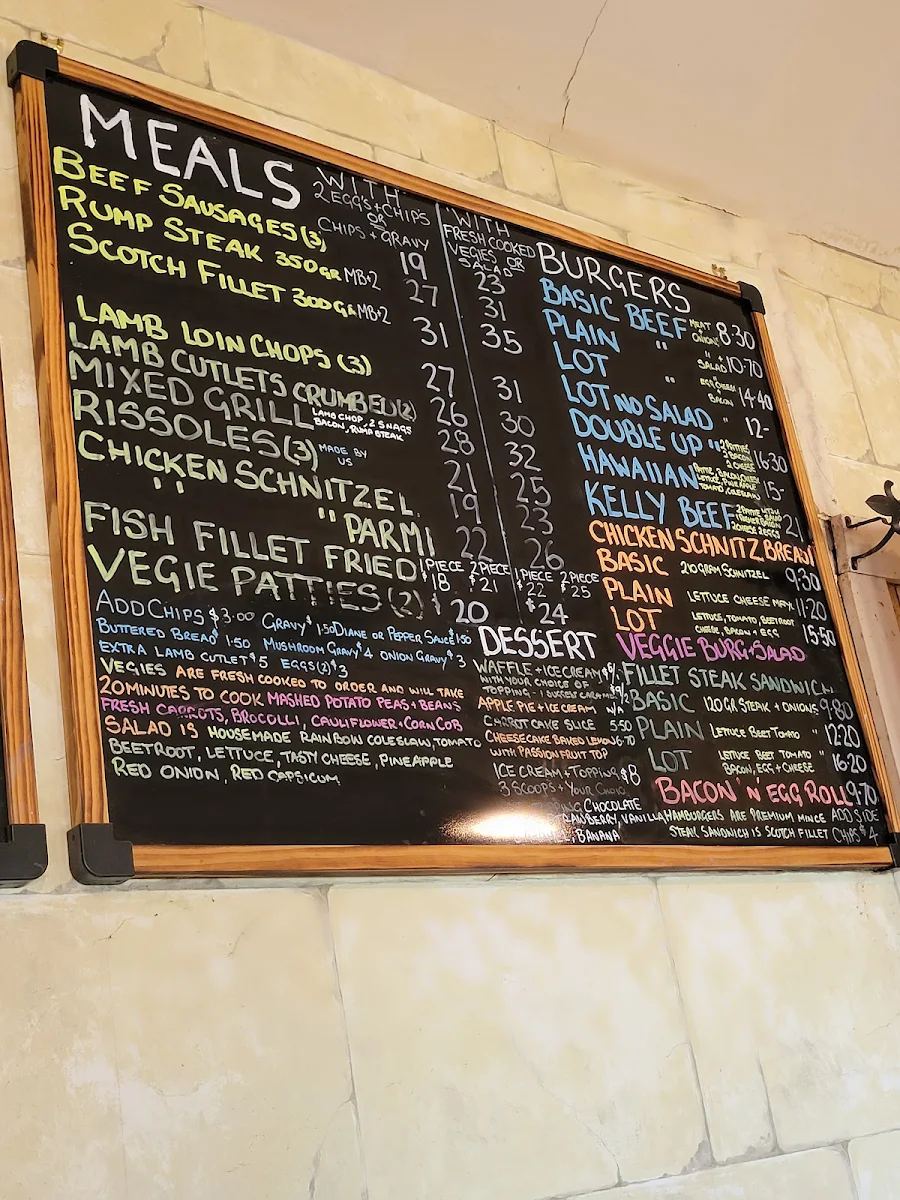 MEALS
WITH
2 EGG'S + CHIPS
OR
CHIPS + GRAVY
WITH
FRESH COOKED
VEGIES OR
SALAD
BEEF SAUSAGES (3) 19 23
RUMP STEAK 350GR MB+2 27 31
SCOTCH FILLET 300GR MB+2 31 35
LAMB LOIN CHOPS (3) 27 31
LAMB CUTLETS CRUMBED (2) 26 30
MIXED GRILL LAMB CHOP, 2 SNAGS 28 32
BACON, RUMP STEAK
RISSOLES (3) MADE BY US 21 25
CHICKEN SCHNITZEL 19 23
" " " PARMI 22 26
FISH FILLET FRIED 1 PIECE $18 2 PIECE $21 1 PIECE $22 2 PIECE $25
VEGIE PATTIES (2) $20 $24
ADD CHIPS $3.00 GRAVY $1.50 DIANE OR PEPPER SAUCE $1.50
BUTTERED BREAD $1.50 MUSHROOM GRAVY $4 ONION GRAVY $3
EXTRA LAMB CUTLET $5 EGGS (2) $3
VEGIES ARE FRESH COOKED TO ORDER AND WILL TAKE
20 MINUTES TO COOK MASHED POTATO PEAS + BEANS
FRESH CARROTS, BROCOLLI, CAULIFLOWER + CORN COB
SALAD IS HOUSEMADE RAINBOW COLESLAW, TOMATO
BEETROOT, LETTUCE, TASTY CHEESE, PINEAPPLE
RED ONION, RED CAPSICUM
DESSERT
WAFFLE + ICECREAM
WITH YOUR CHOICE OF
TOPPING - I SUGGEST CARAMEL
APPLE PIE + ICE CREAM
CARROT CAKE SLICE 5.50
CHEESECAKE BAKED LEMON 6.70
WITH PASSIONFRUIT TOP
ICE CREAM + TOPPING $8
3 SCOOPS + YOUR CHOICE
CHOCOLATE
STRAWBERRY, VANILLA
BANANA
BURGERS
BASIC BEEF MEAT ONIONS 8.30
PLAIN " " + SALAD 10.70
LOT " EGG CHEESE BACON 14.40
LOT NO SALAD " 12-
DOUBLE UP " 2 PATTIES 2 BACON 2 CHEESE 16.30
HAWAIIAN PATTIE, BACON, CHEESE 15-
LETTUCE, PINEAPPLE
TOMATO COLESLAW
KELLY BEEF 21
CHICKEN SCHNITZ BREAST
BASIC 210 GRAM SCHNITZEL 9.30
PLAIN LETTUCE CHEESE MAYO 11.20
LOT LETTUCE, TOMATO, BEETROOT 15.50
CHEESE, BACON + EGG
VEGGIE BURG + SALAD
FILLET STEAK SANDWICH
BASIC 120 GR STEAK + ONIONS 9.80
PLAIN LETTUCE BEET TOMATO " 12.20
LOT LETTUCE BEET TOMATO " 16.20
BACON, EGG + CHEESE
BACON 'N' EGG ROLL 9.70
HAMBURGERS ARE PREMIUM MINCE ADD SIDE
STEAK SANDWICH IS SCOTCH FILLET CHIPS $4